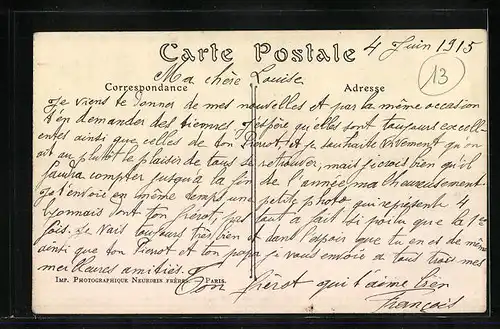 Carte Postale 4 Juin 1915
13
Ma chère Louise.
Correspondance Adresse
Je viens te donner de mes nouvelles et par la même occasion
t'en demander des tiennes. J'espère qu'elles sont toujours excell-
entes ainsi que celles de ton Pierrot, et je souhaite vivement qu'on
ait au plutôt le plaisir de tous se retrouver, mais je crois bien qu'il
faudra compter jusqu'à la fin de l'année malheureusement
Je t'envoie en même temps une petite photo qui représente 4
Lyonnais dont ton frérot, pas tout à fait si poilu que la 1ère
fois. Je vais toujours très bien et dans l'espoir que tu en es de même
ainsi que ton Pierrot et ton papa je vous envoie à tous trois mes
meilleures amitiés.
Imp. Photographique Neurdein frères. Paris.
Ton frérot qui t'aime bien
François